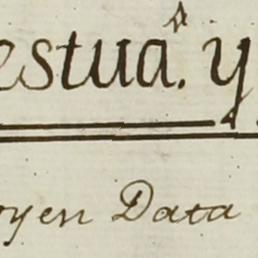 estua. y
oyen Data